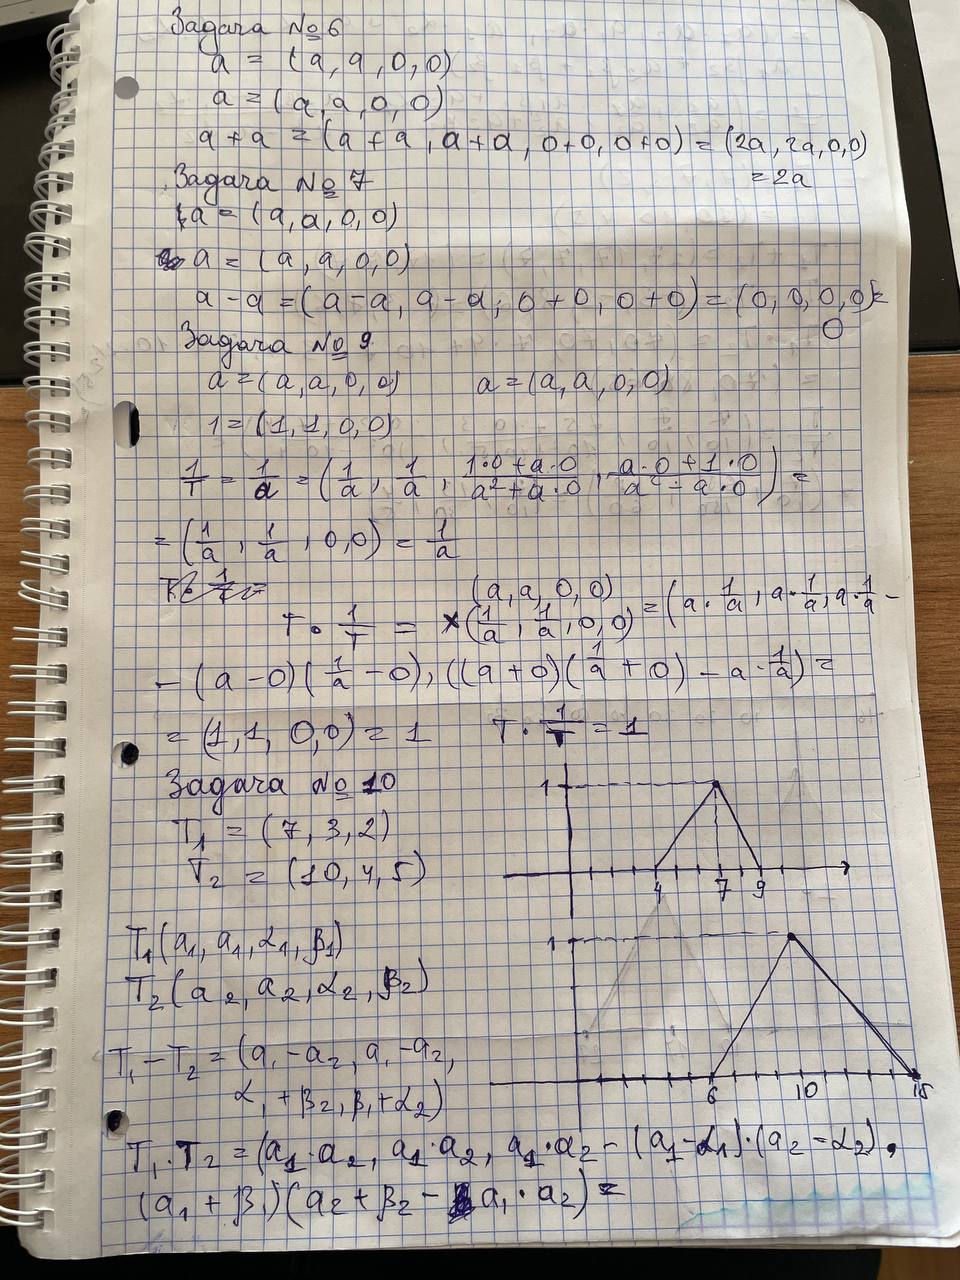 Задача № 6
a = (a, a, 0, 0)
a = (a, a, 0, 0)
a + a = (a + a, a + a, 0+0, 0+0) = (2a, 2a, 0, 0)
= 2a
Задача № 7
a = (a, a, 0, 0)
a = (a, a, 0, 0)
a - a = (a - a, a - a, 0 + 0, 0 + 0) = (0, 0, 0, 0) =
0
Задача № 9
a = (a, a, 0, 0) a = (a, a, 0, 0)
1 = (1, 1, 0, 0)
1/T = 1/a = (1/a, 1/a, (1·0 + a·0)/(a² + a·0), (a·0 + 1·0)/(a² - a·0)) =
= (1/a, 1/a, 0, 0) = 1/a
T · 1/T = × (a, a, 0, 0) (1/a, 1/a, 0, 0) = (a · 1/a, a · 1/a, a · 1/a -
- (a - 0)(1/a - 0), ((a + 0)(1/a + 0) - a · 1/a) =
= (1, 1, 0, 0) = 1 T · 1/T = 1
Задача № 10
T₁ = (7, 3, 2)
T₂ = (10, 4, 5)
1
4 7 9
T₁(a₁, a₁, α₁, β₁)
T₂(a₂, a₂, α₂, β₂)
1
6 10 15
T₁ - T₂ = (a₁ - a₂, a₁ - a₂,
α₁ + β₂, β₁ + α₂)
T₁ · T₂ = (a₁ · a₂, a₁ · a₂, a₁ · a₂ - (a₁ - α₁) · (a₂ - α₂),
(a₁ + β₁)(a₂ + β₂ - a₁ · a₂) =